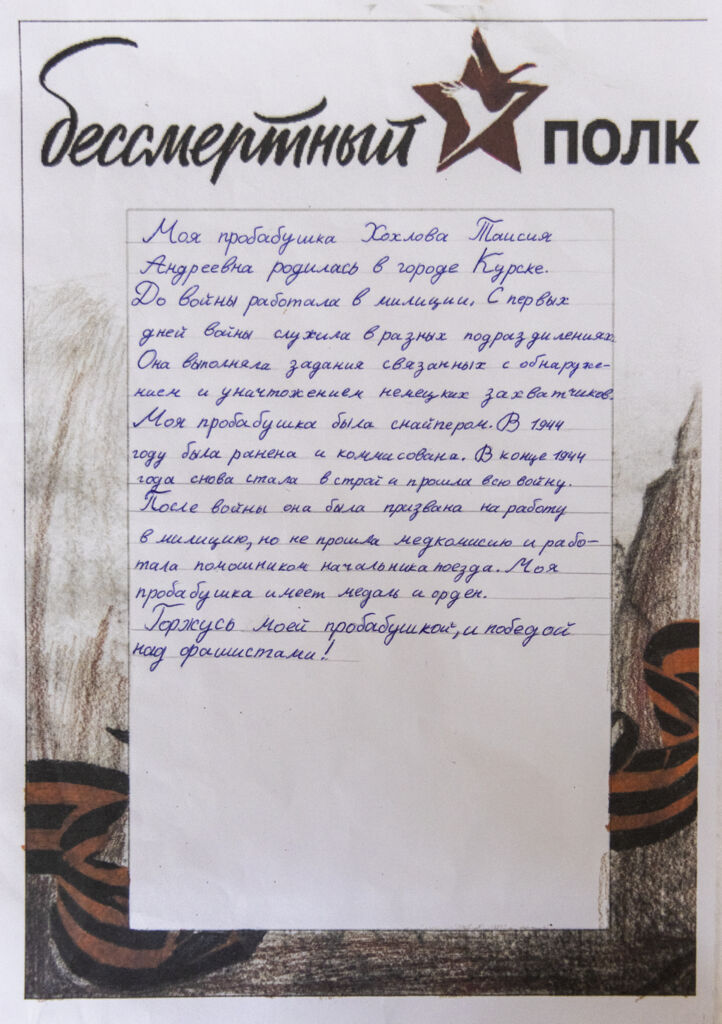 бессмертный полк
Моя пробабушка Хохлова Таисия
Андреевна родилась в городе Курске.
До войны работала в милиции. С первых
дней войны служила в разных подразделениях.
Она выполняла задания связанных с обнаруже-
нием и уничтожением немецких захватчиков.
Моя пробабушка была снайпером. В 1944
году была ранена и коммисована. В конце 1944
года снова стала в страй и прошла всю войну.
После войны она была призвана на работу
в милицию, но не прошла медкомисию и рабо-
тала помошником начальника поезда. Моя
пробабушка имеет медаль и орден.
Горжусь моей пробабушкой, и победой
над фашистами!